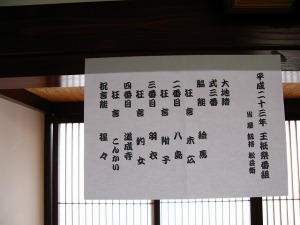 平成二十三年 王祇祭番組
当屋 釼持 松兵衛
大地踏
式三番
脇能 絵馬
狂言 末広
二番目 八島
狂言 附子
三番目 羽衣
狂言 釣女
四番目 道成寺
狂言 こんかい
祝言能 猩々